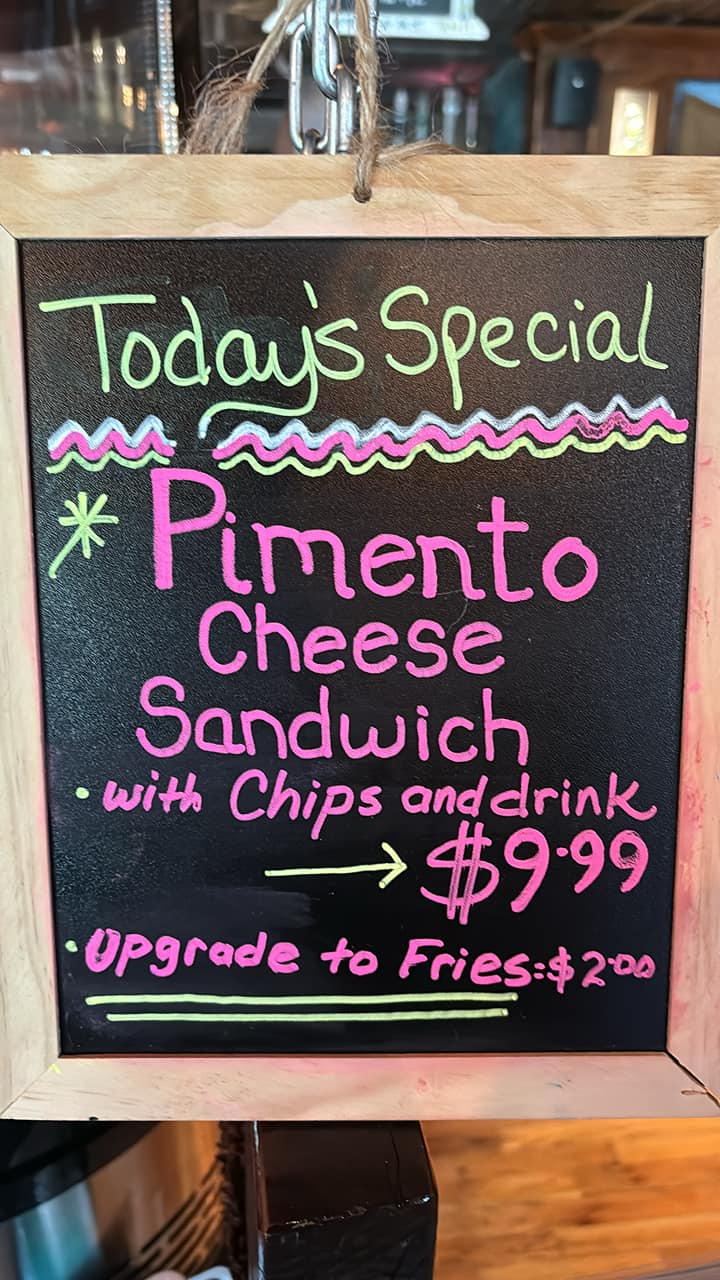 Today's Special
Pimento
Cheese
Sandwich
• with Chips and drink
→ $9.99
• Upgrade to Fries: $2.00